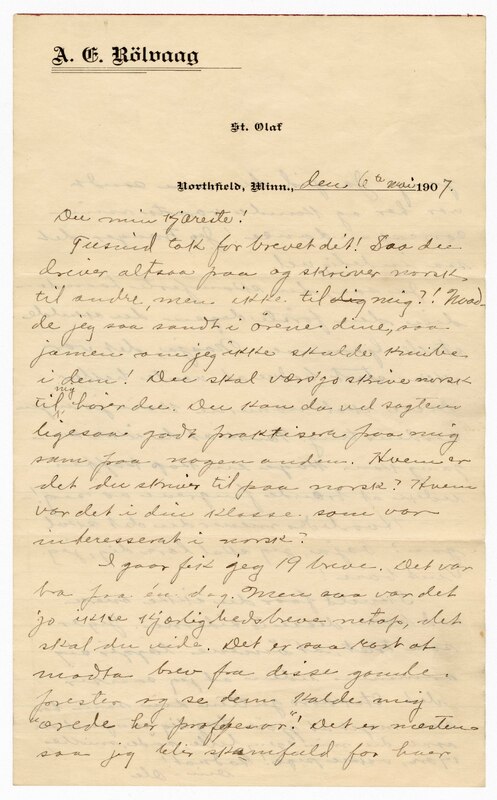 A. E. Rölvaag
St. Olaf
Northfield, Minn., den 6te mai 1907.
Du min Kjæreste!
Tusind tak for brevet dit! Saa du
driver altsaa paa og skriver norsk
til andre, men ikke til mig?! Hvad-
de jeg saa sandt i ørene dine, saa
jamen om jeg ikke skulde knibe
i dem! Du skal værsgo skrive norsk
til mig hører du. Du kan da vel sagtens
ligesaa godt praktisere paa mig
som paa nogen anden. Hvem er
det du skriver til paa norsk? Hvem
var det i din klasse som var
interesseret i norsk?
I gaar fik jeg 19 breve. Det var
bra paa én dag. Men saa var det
jo ikke kjærlighedsbreve netop, det
skal du vide. Det er saa rart at
modta brev fra disse gamle
prester og se dem kalde mig
"ærede her professor"! Det er næsten
saa jeg blir skamfuld for hver